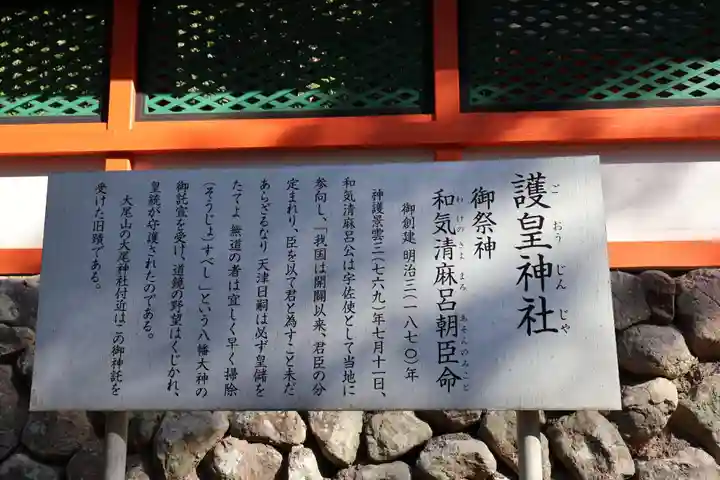 護皇神社
ごおうじんじゃ
御祭神
和気清麻呂朝臣命
わけのきよまろあそんのみこと
御創建 明治三(一八七〇)年
神護景雲三(七六九)年七月十一日、
和気清麻呂公は宇佐使として当地に
参向し、「我国は開闢以来、君臣の分
定まれり、臣を以て君と為すこと未た
あらざるなり 天津日嗣は必ず皇儲を
たてよ 無道の者は宜しく早く掃除
(そうじょ)すべし」という八幡大神の
御託宣を受け、道鏡の野望はくじかれ、
皇統が守護されたのである。
大尾山の大尾神社付近はこの御神託を
受けた旧蹟である。